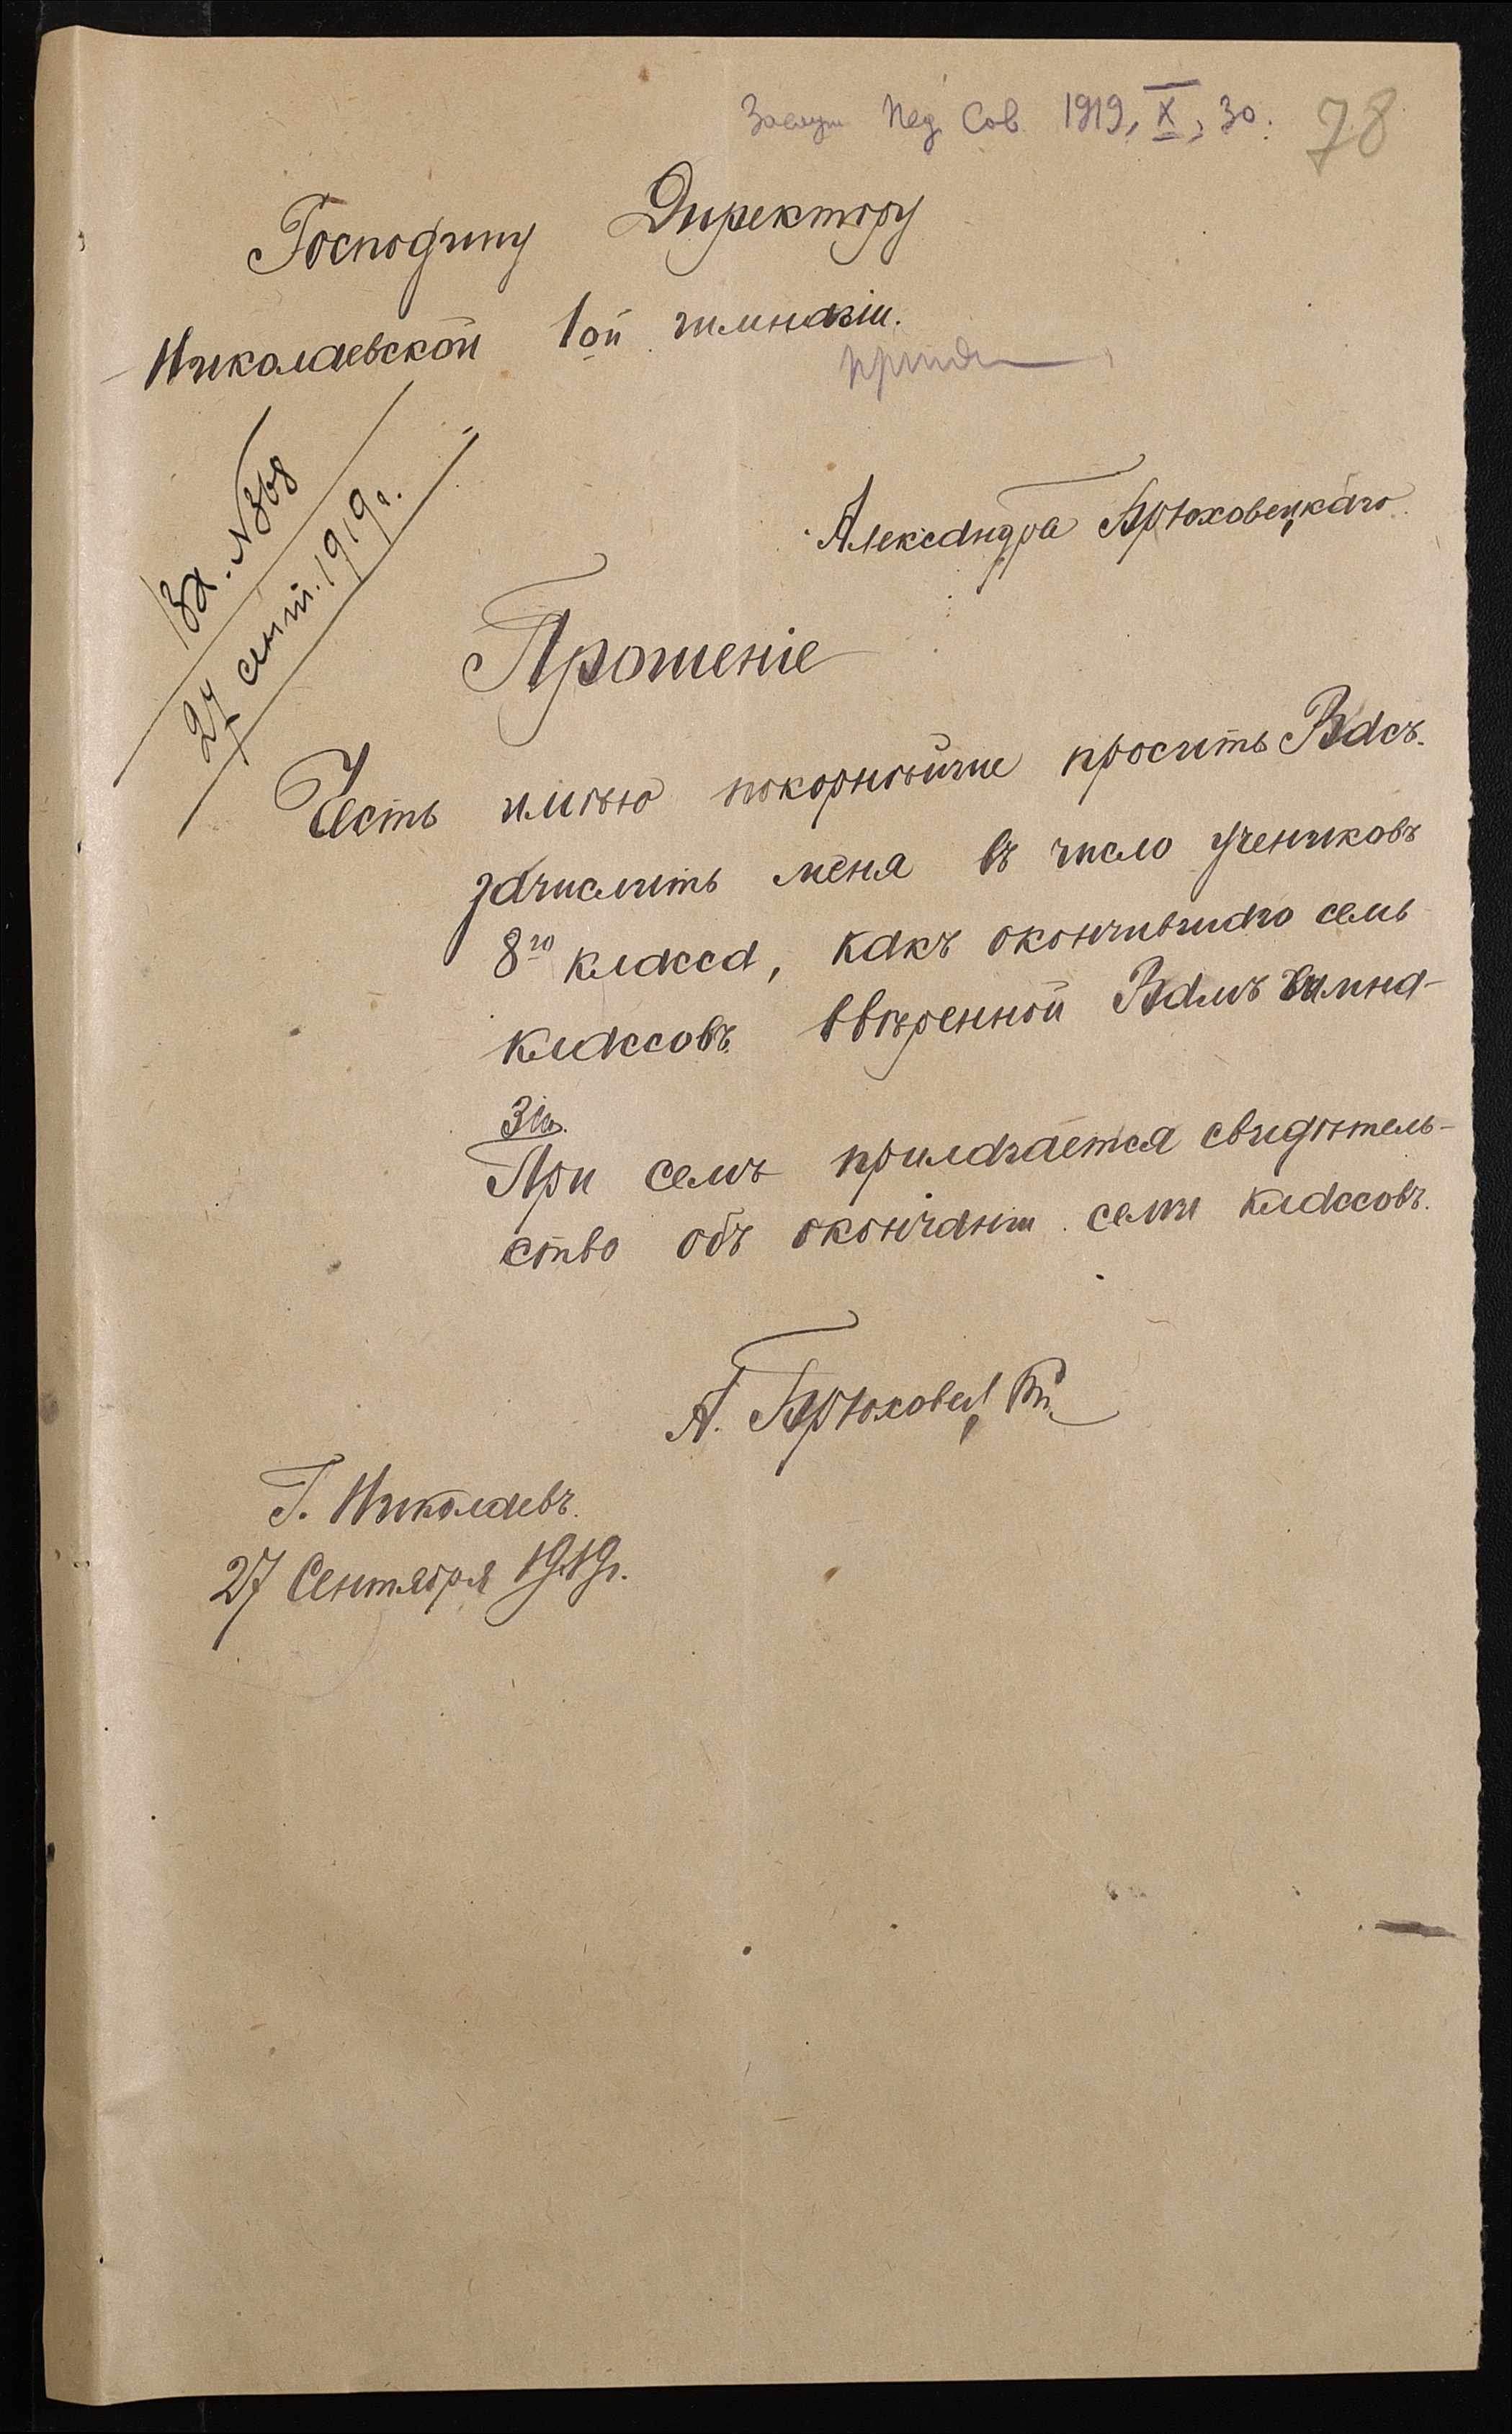 Засед Пед Сов 1919, X, 30. 78
Господину Директору
Николаевской 1ой гимназіи.
Вх. №368
27 сент. 1919 г.
Александра Брюховецкаго.
Прошеніе
Честь имѣю покорнѣйше просить Васъ
зачислить меня въ число учениковъ
8го класса, какъ окончившаго семь
классовъ ввѣренной Вамъ Гимна-
зіи.
При семъ прилагается свидѣтель-
ство объ окончаніи семи классовъ.
А. Брюховецкій
Г. Николаевъ.
27 Сентября 1919г.